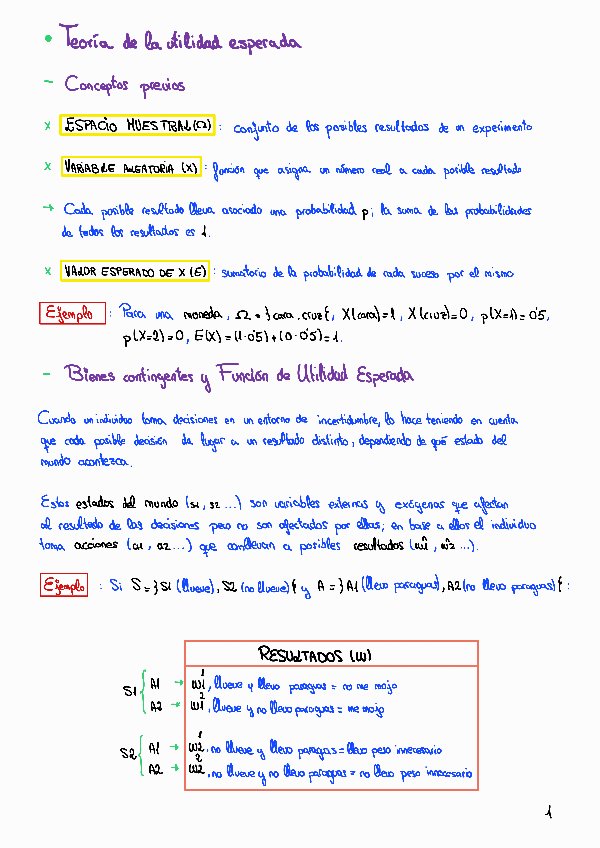 • Teoría de la utilidad esperada
- Conceptos previos
x ESPACIO MUESTRAL (Ω) : conjunto de los posibles resultados de un experimento
x VARIABLE ALEATORIA (X) : función que asigna un número real a cada posible resultado
→ Cada posible resultado lleva asociado una probabilidad p; la suma de las probabilidades
de todos los resultados es 1.
x VALOR ESPERADO DE X (E) : sumatorio de la probabilidad de cada suceso por el mismo
Ejemplo : Para una moneda, Ω = }cara, cruz{, X(cara)=1, X(cruz)=0, p(X=1)=0'5,
p(X=2)=0, E(X)=(1·0'5)+(0·0'5)=1.
- Bienes contingentes y Función de Utilidad Esperada
Cuando un individuo toma decisiones en un entorno de incertidumbre, lo hace teniendo en cuenta
que cada posible decisión da lugar a un resultado distinto, dependiendo de qué estado del
mundo acontezca.
Estos estados del mundo (s1, s2 ...) son variables externas y exógenas que afectan
al resultado de las decisiones pero no son afectados por ellas; en base a ellos el individuo
toma acciones (a1, a2 ...) que conllevan a posibles resultados (w1, w2 ...).
Ejemplo : Si S = }S1 (llueve), S2 (no llueve){ y A = }A1 (llevo paraguas), A2 (no llevo paraguas){ :
RESULTADOS (W)
S1 { A1 → w1¹, llueve y llevo paraguas = no me mojo
A2 → w1², llueve y no llevo paraguas = me mojo
S2 { A1 → w2¹, no llueve y llevo paraguas = llevo peso innecesario
A2 → w2², no llueve y no llevo paraguas = no llevo peso innecesario
1